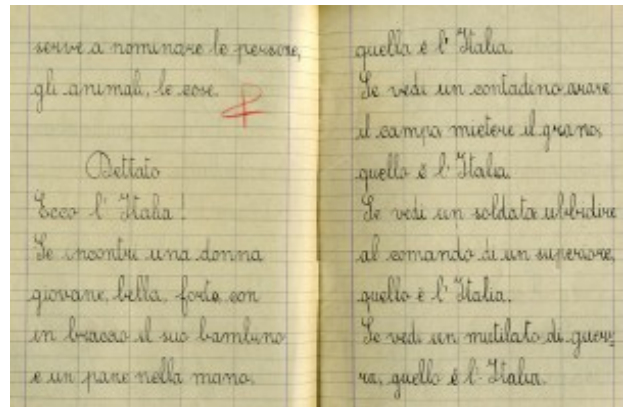 serve a nominare le persone,
gli animali, le cose.
Dettato
Ecco l' Italia!
Se incontri una donna
giovane, bella, forte con
in braccio il suo bambino
e un pane nella mano,
quella è l' Italia.
Se vedi un contadino arare
il campo mietere il grano,
quello è l' Italia.
Se vedi un soldato ubbidire
al comando di un superiore,
quello è l' Italia.
Se vedi un mutilato di guer-
ra, quello è l' Italia.